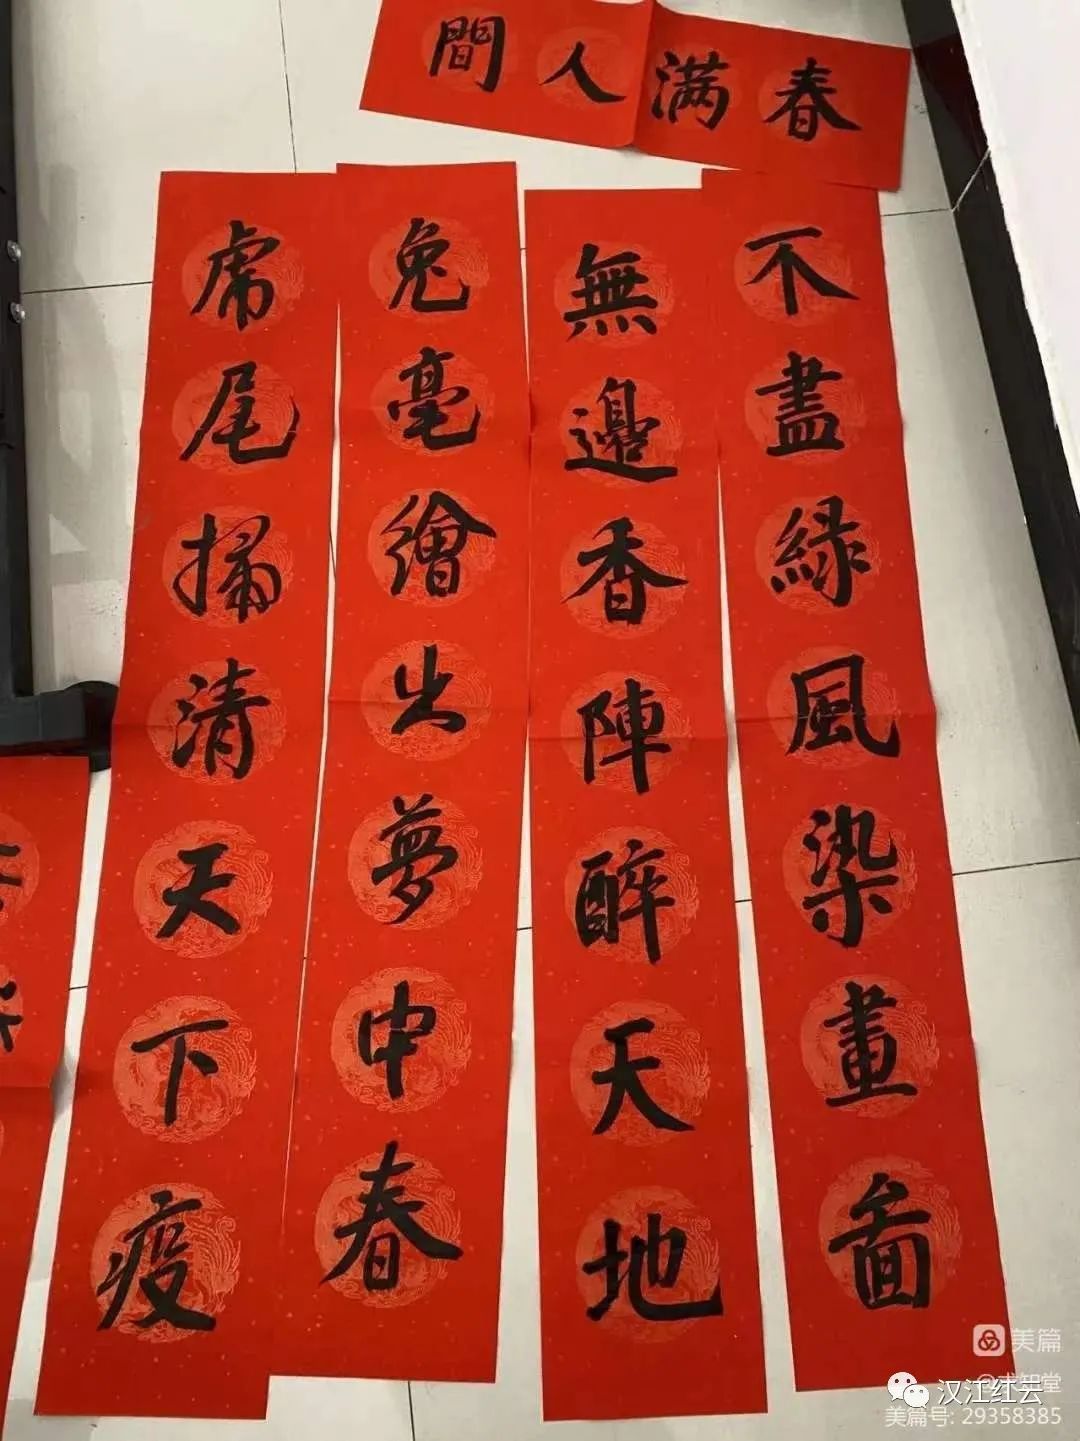 春满人間
不盡緑風染畫面
無邊香陣醉天地
兔毫繪出夢中春
虎尾掃清天下疫
美篇
汉江红云
美篇号: 29358385